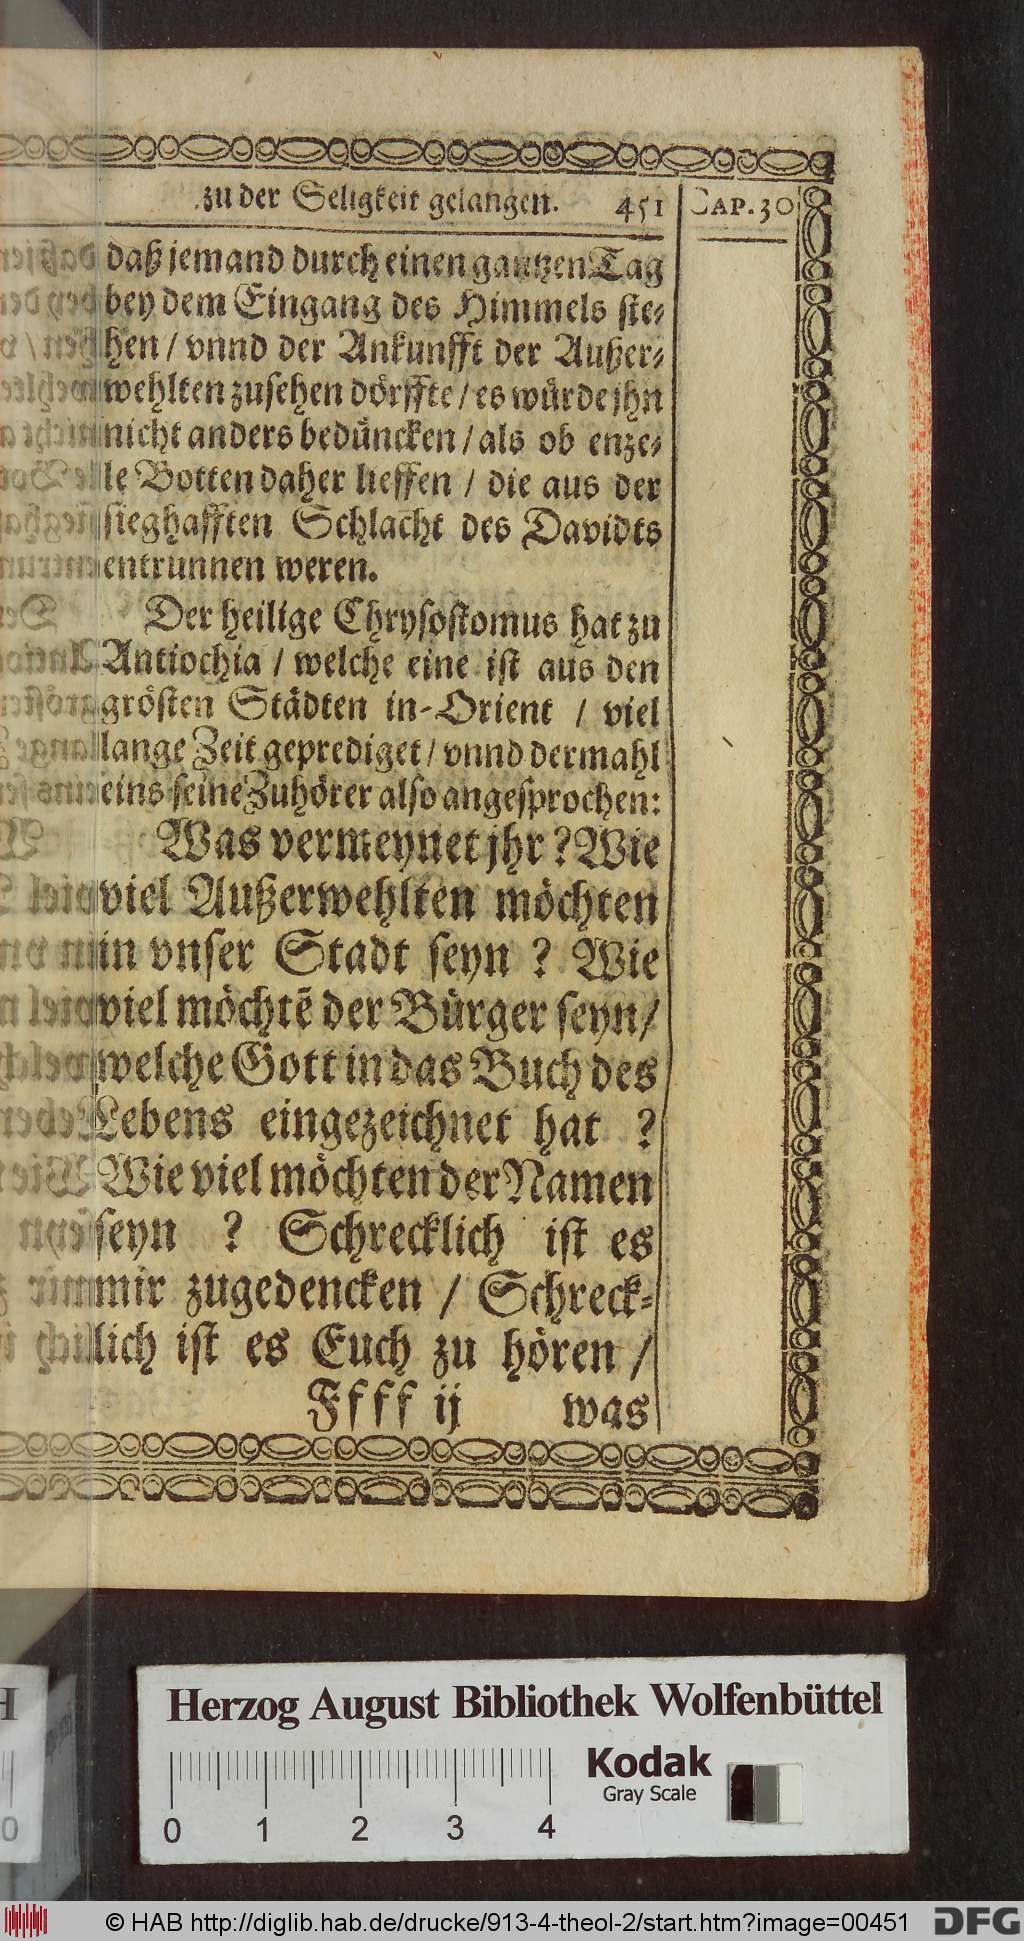 zu der Seligkeit gelangen. 451 CAP. 30
daß jemand durch einen gantzen Tag
bey dem Eingang des Himmels ste-
hen / vnnd der Ankunfft der Außer-
wehlten zusehen dörffte / es würde jhn
nicht anders bedüncken / als ob enze-
le Botten daher lieffen / die aus der
sieghafften Schlacht des Davidts
entrunnen weren.
Der heilige Chrysostomus hat zu
Antiochia / welche eine ist aus den
grösten Städten in-Orient / viel
lange Zeit geprediget / vnnd dermahl
eins seine Zuhörer also angesprochen:
Was vermeynet jhr? Wie
viel Außerwehlten möchten
in vnser Stadt seyn? Wie
viel möchtẽ der Bürger seyn /
welche Gott in das Buch des
Lebens eingezeichnet hat ?
Wie viel möchten der Namen
seyn ? Schrecklich ist es
mir zugedencken / Schreck-
lich ist es Euch zu hören /
Ffff ij was
Herzog August Bibliothek Wolfenbüttel
Kodak
Gray Scale
0 1 2 3 4
© HAB http://diglib.hab.de/drucke/913-4-theol-2/start.htm?image=00451 DFG